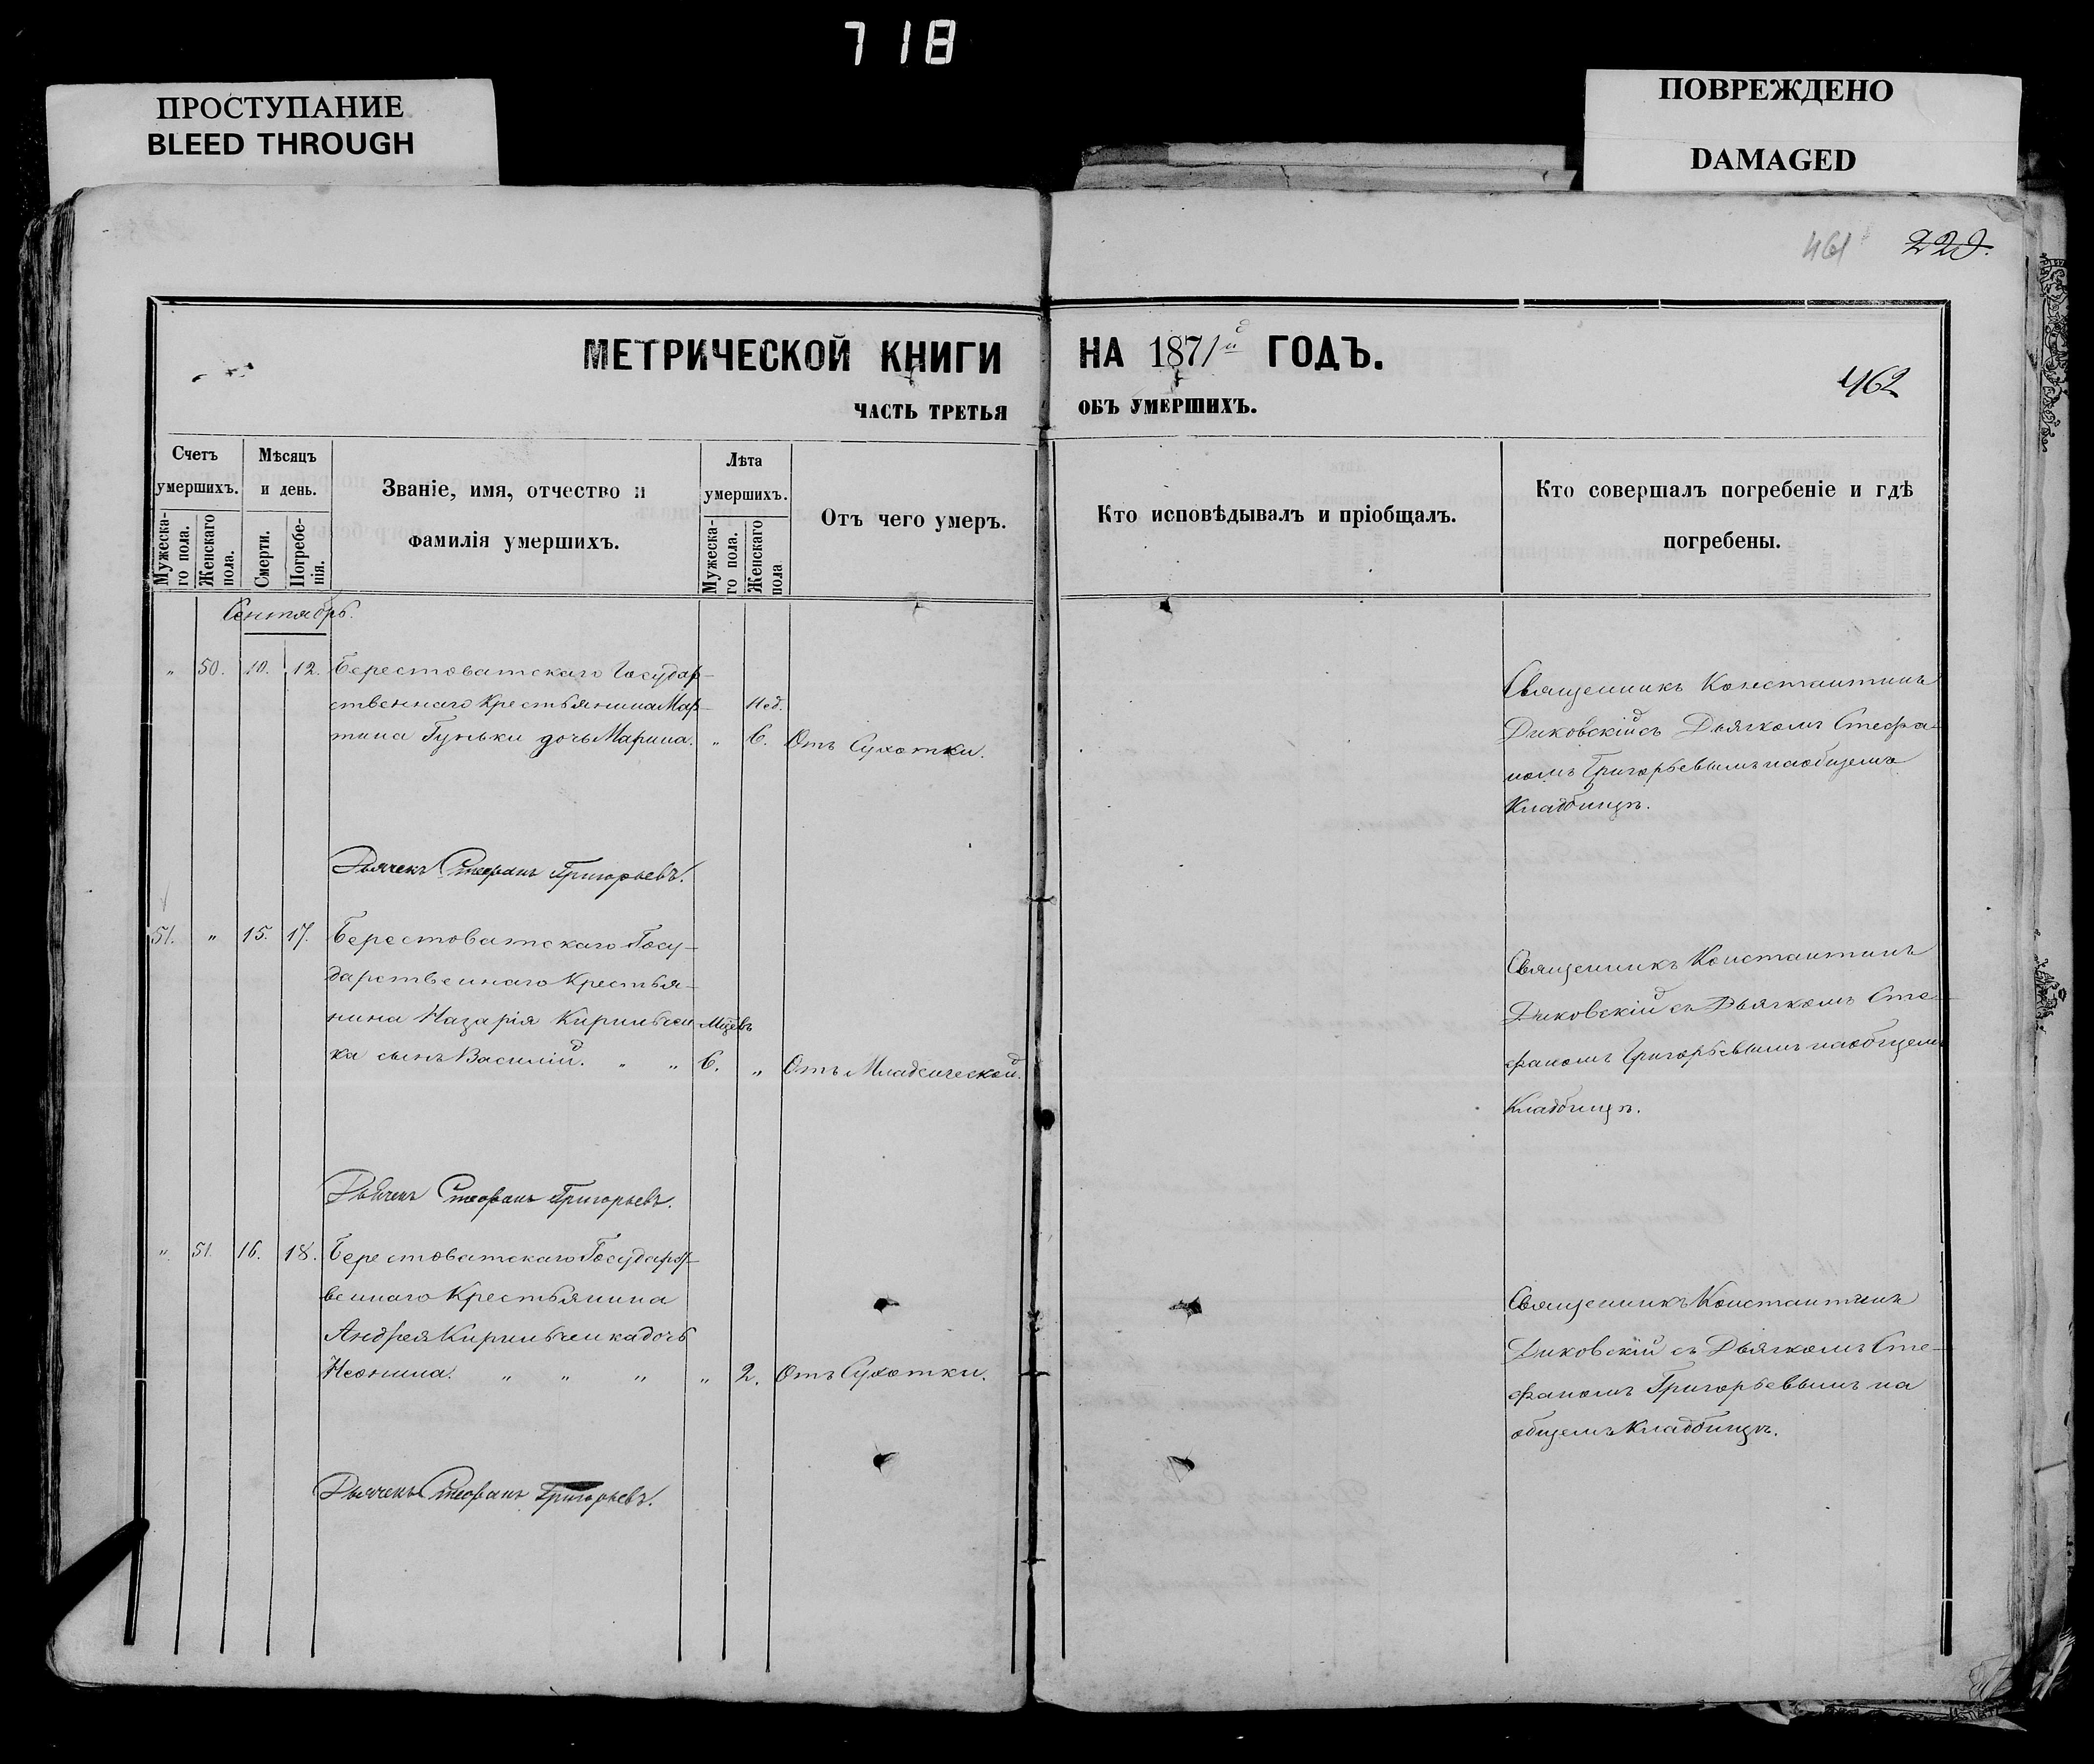 718
ПРОСТУПАНИЕ
BLEED THROUGH
ПОВРЕЖДЕНО
DAMAGED
461
МЕТРИЧЕСКОЙ КНИГИ НА 1871й ГОДЪ.
462
ЧАСТЬ ТРЕТЬЯ ОБЪ УМЕРШИХЪ.
Счетъ
умершихъ.
Мужеска-
го пола.
Женскаго
пола.
Мѣсяцъ
и день.
Смерти.
Погребе-
нія.
Званіе, имя, отчество и
фамилія умершихъ.
Лѣта
умершихъ.
Мужеска-
го пола.
Женскаго
пола
Отъ чего умеръ.
Кто исповѣдывалъ и пріобщалъ.
Кто совершалъ погребеніе и гдѣ
погребены.
Сентябрь.
" 50. 10. 12. Берестоватскаго Государ-
ственнаго Крестьянина Мар-
тина Гуньки дочь Марина. "
Нед.
6. Отъ Сухотки.
Священникъ Константинъ
Диковскій съ Дьячкомъ Стефа-
номъ Григорьевымъ на общемъ
Кладбищѣ.
Дьячекъ Стефанъ Григорьевъ.
51. " 15. 17. Берестоватскаго Госу-
дарственнаго Крестья-
нина Назарія Кирильчен
ка сынъ Василій. " "
Мцевъ
6. " Отъ Младенческой.
Священникъ Константинъ
Диковскій съ Дьячкомъ Сте-
фаномъ Григорьевымъ на общемъ
Кладбищѣ.
Дьячекъ Стефанъ Григорьевъ.
" 51. 16. 18. Берестоватскаго Государст-
веннаго Крестьянина
Андрея Кирильченка дочь
Неонила. " " " " 2. Отъ Сухотки.
Священникъ Константинъ
Диковскій съ Дьячкомъ Сте-
фаномъ Григорьевымъ на
общемъ Кладбищѣ.
Дьячекъ Стефанъ Григорьевъ.